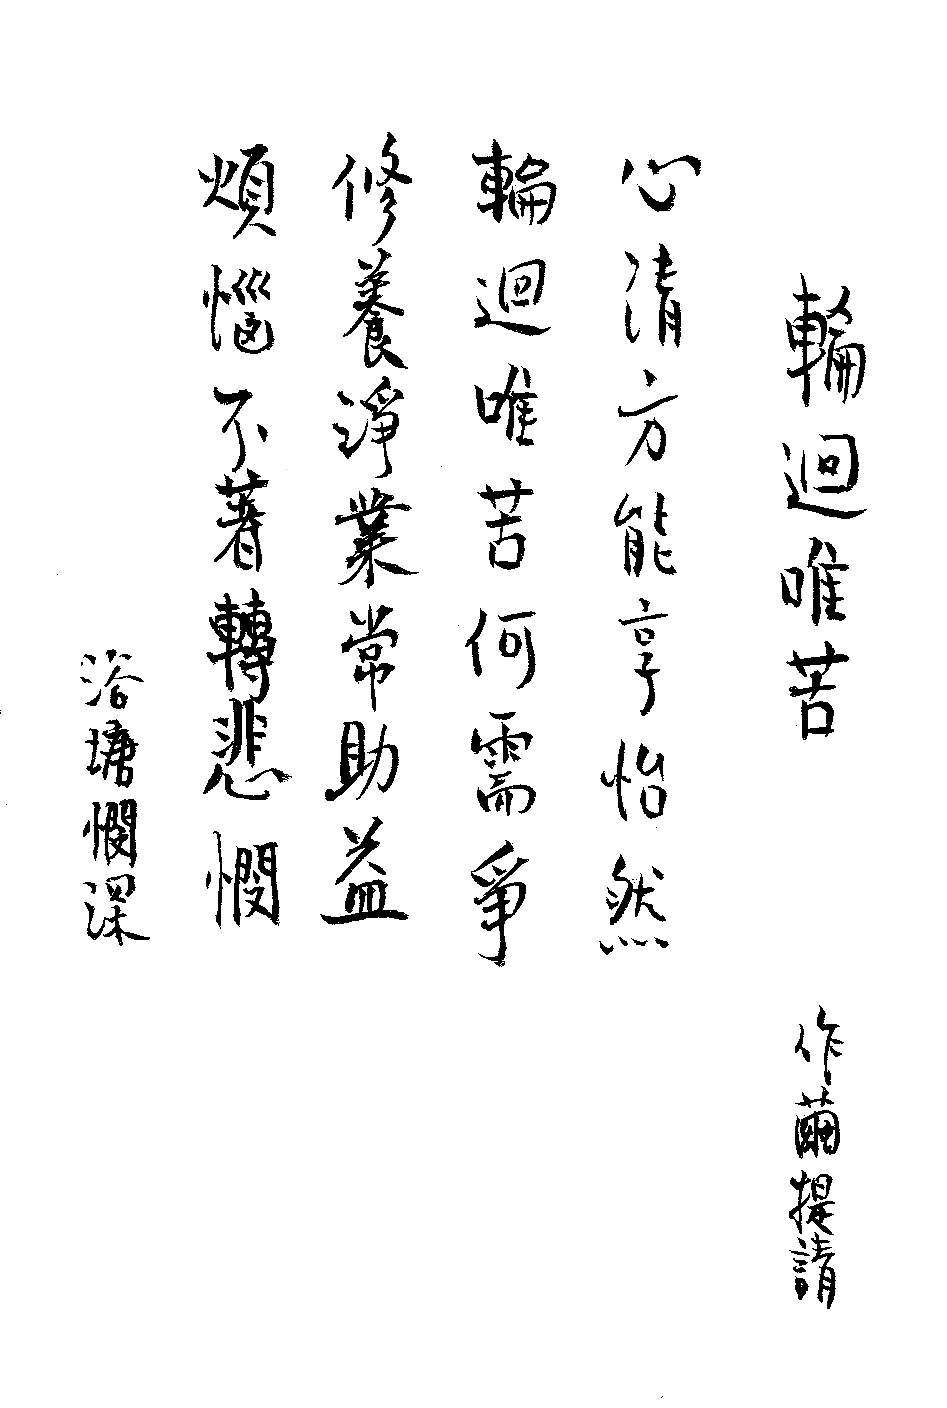 輪迴唯苦
作繭提請
心清方能享怡然
輪迴唯苦何需爭
修養淨業常助益
煩惱不著轉悲憫
浴塘憫深